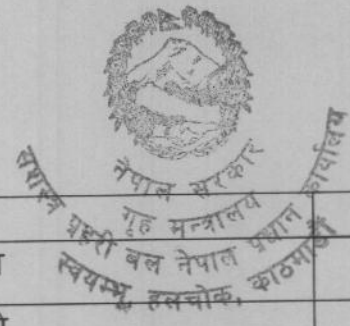 नेपाल सरकार
गृह मन्त्रालय
सशस्त्र प्रहरी बल नेपाल प्रधान कार्यालय
स्वयम्भू, हलचोक, काठमाडौं